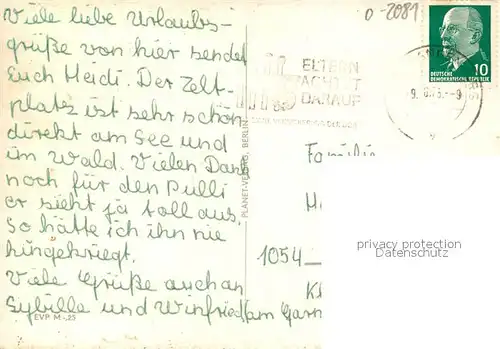 Viele liebe Urlaubs-
grüße von hier sendet
Euch Heidi. Der Zelt-
platz ist sehr schön
direkt am See und
im Wald. Vielen Dank
noch für den Pulli
er sieht ja toll aus.
So hätte ich ihn nie
hingekriegt.
Viele Grüße auch an
Sybille und Winfried
EVP M -,25
PLANET-VERLAG, BERLIN
0-2081
ELTERN
ACHTET
DARAUF
DEUTSCHE
DEMOKRATISCHE REPUBLIK
10
-9
Familie
1054
privacy protection
Datenschutz
am Garn